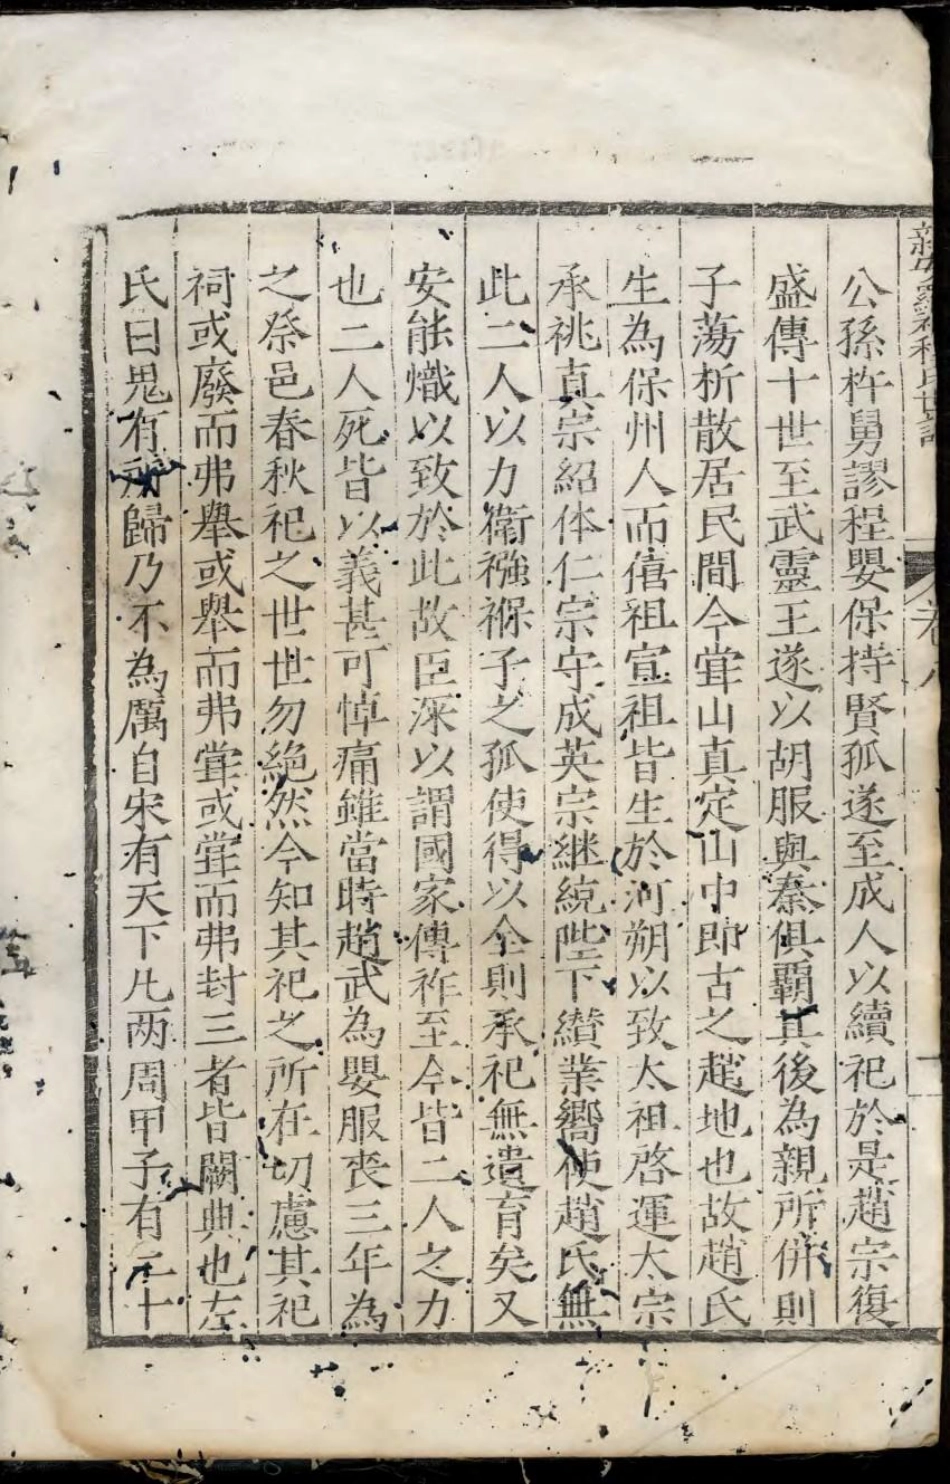 卷八
公孫杵舅謬程嬰保持賢孤遂至成人以續祀於是趙宗復
盛傳十世至武靈王遂以胡服與秦俱覇其後為親所併則
子蕩析散居民間今甞山真定山中即古之趙地也故趙氏
生為保州人而僖祖宣祖皆生於河朔以致太祖啓運太宗
承祧真宗紹体仁宗守成英宗継統陛下纉業嚮使趙氏無
此二人以力衛襁褓子之孤使得以全則承祀無遺育矣又
安能熾以致於此故臣深以謂國家傳祚至今皆二人之力
也二人死皆以義甚可悼痛雖當時趙武為嬰服喪三年為
之祭邑春秋祀之世世勿絶然今知其祀之所在切慮其祀
祠或廢而弗舉或舉而弗甞或甞而弗封三者皆闕典也左
氏曰鬼有所歸乃不為厲自宋有天下凢两周甲子有二十